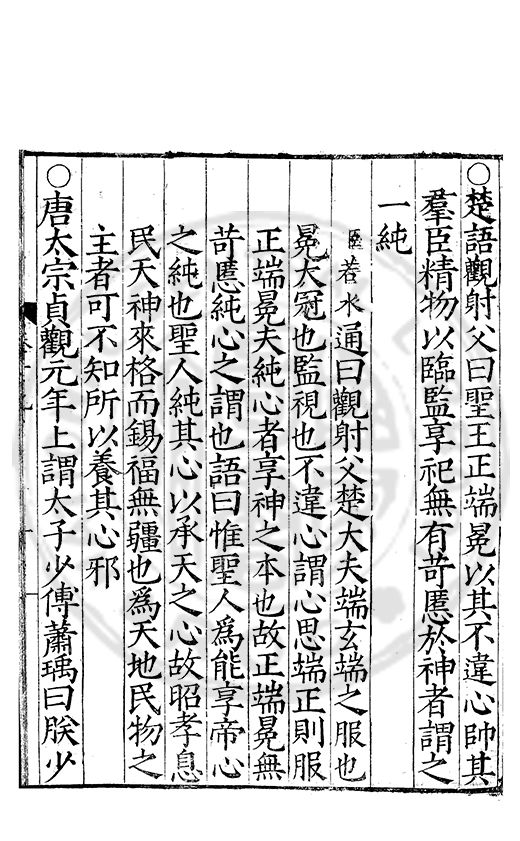 ○楚語觀射父曰聖王正端冕以其不違心帥其
羣臣精物以臨監享祀無有苛慝於神者謂之
一純
臣若水通曰觀射父楚大夫端玄端之服也
冕大冠也監視也不違心謂心思端正則服
正端冕夫純心者享神之本也故正端冕無
苛慝純心之謂也語曰惟聖人爲能享帝心
之純也聖人純其心以承天之心故昭孝息
民天神來格而錫福無疆也爲天地民物之
主者可不知所以養其心邪
○唐太宗貞觀元年上謂太子少傅蕭瑀曰朕少